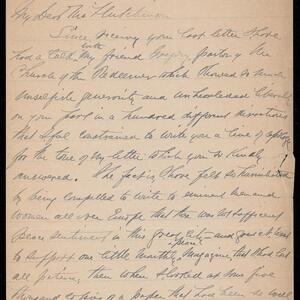 My Dear Mrs Hutchinson
Since receiving your last letter I have
had a talk with my friend Gregory pastor of the
Church of the Redeemer which showed so much
unselfish generosity and unheralded liberality
on your part in a hundred different directions
that I feel constrained to write you a line of apology
for the tone of my letter to which you so kindly
answered. The fact is I have felt so humiliated
by being compelled to write to eminent men and
women all over Europe that there was not sufficient
Peace sentiment in this great City and great
to support one little monthly Magazine that had lost
all patience, then when I looked at some five
thousand copies of a paper that have been so well